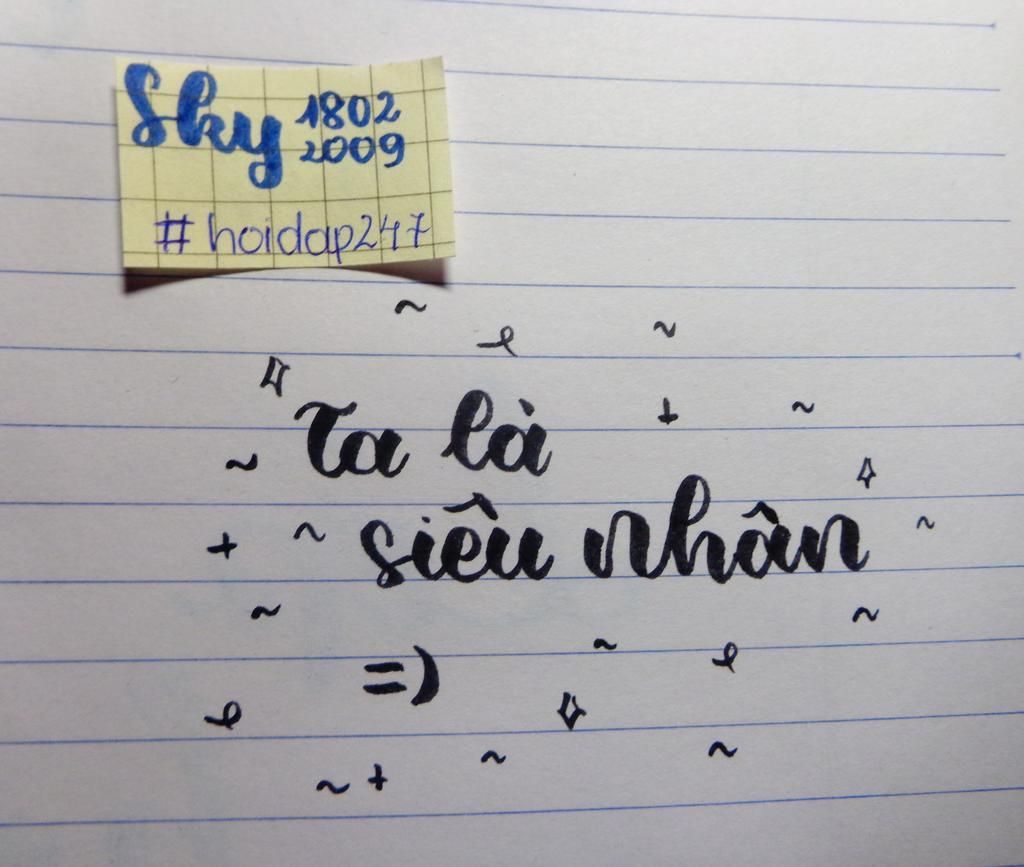 Sky 1802
2009
#hoidap247
Ta là
siêu nhân
=)